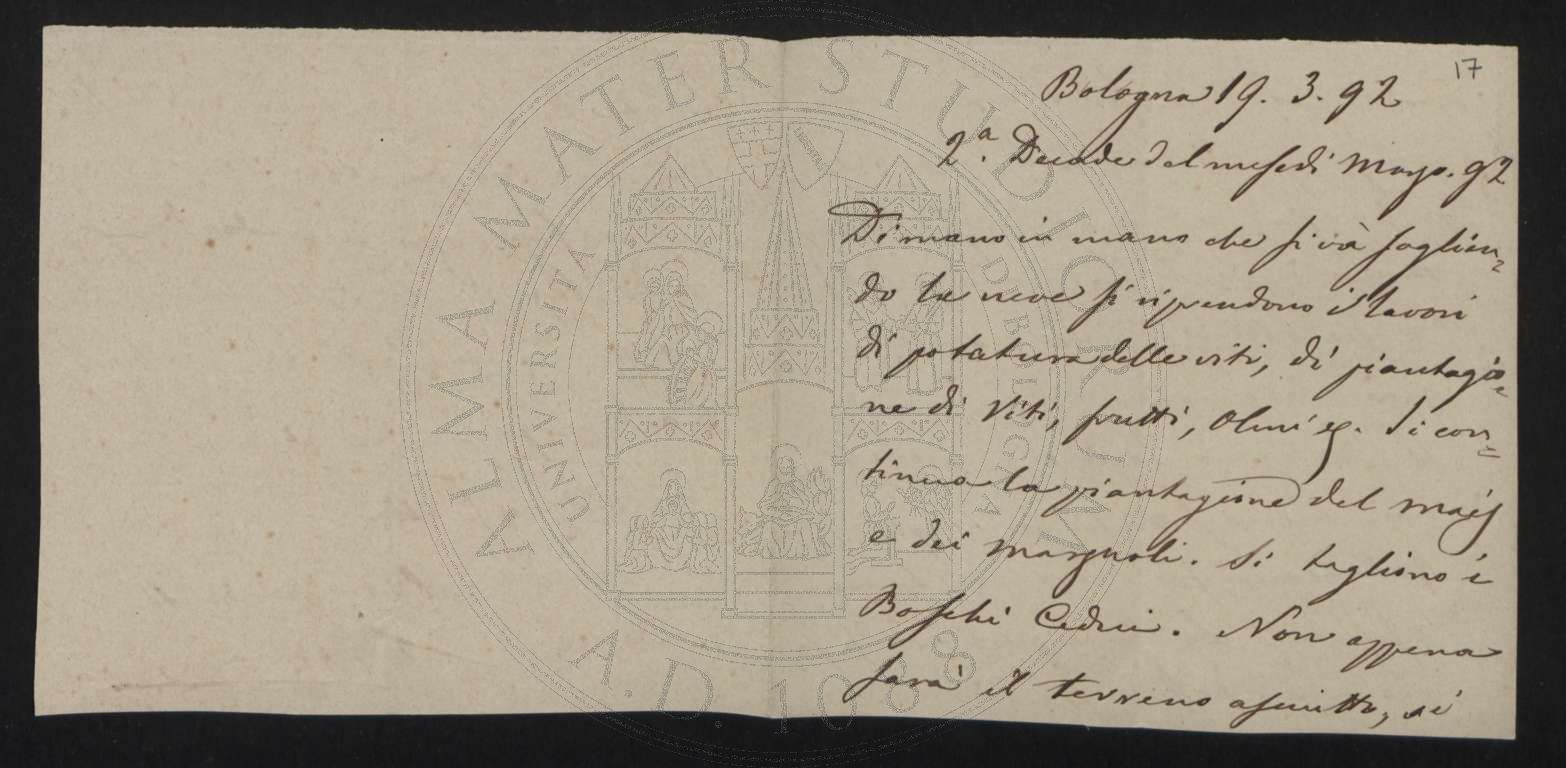 17
Bologna 19. 3. 92
2.ª Decade del mese di Marzo. 92
Di mano in mano che si và soglien=
do la neve si riprendono i lavori
di potatura delle viti, di piantagio=
ne di Viti, frutti, Olmi eç. Si con=
tinua la piantagione del maïs
e dei marzuoli. Si tagliono i
Boschi Cedui. Non appena
sarà il terreno asciutto, si
ALMA MATER STUDIORUM
UNIVERSITÀ DI BOLOGNA
A.D. 1088